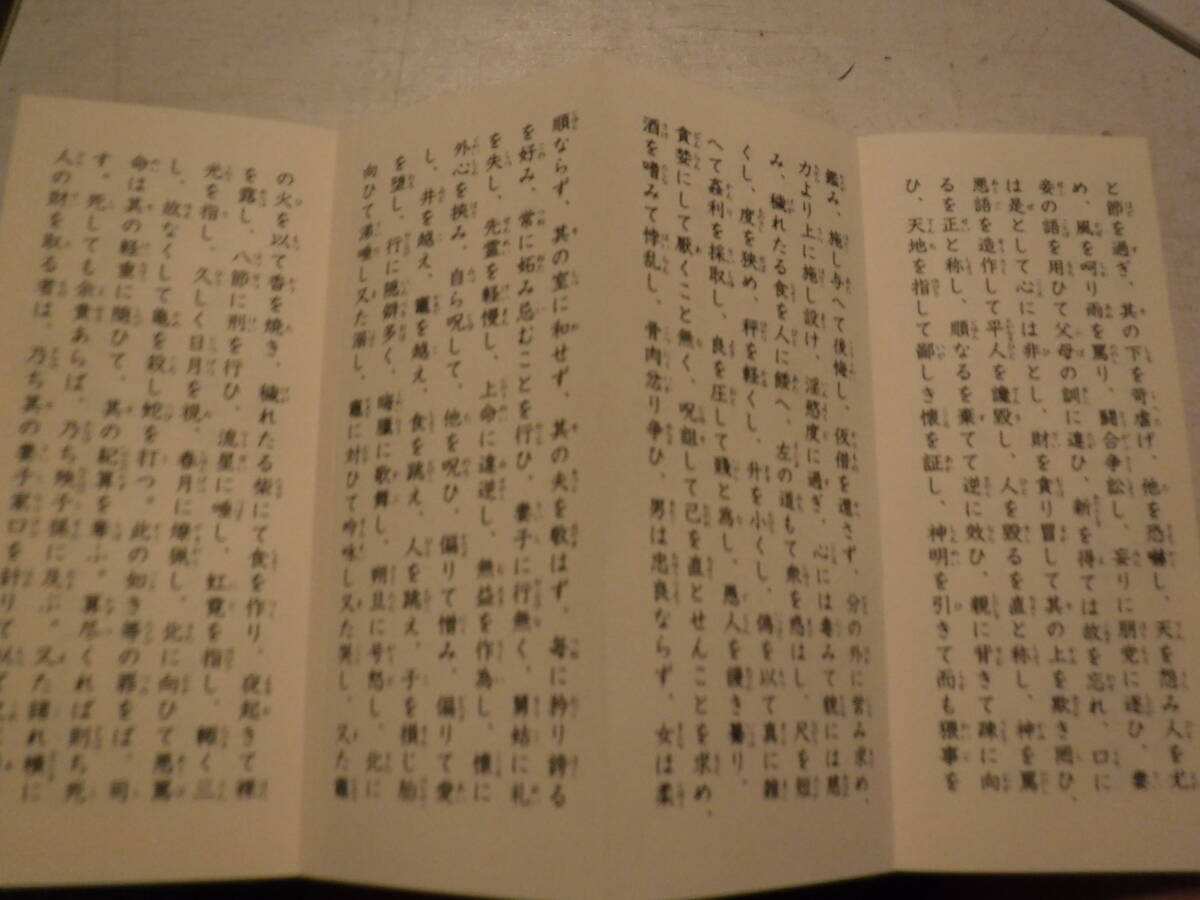 と節を過ぎ、其の下を苛虐げ、他を恐嚇し、天を怨み人を尤
め、風を呵り雨を罵り、闘合争訟し、妄りに朋党に逐ひ、妻
妾の語を用ひて父母の訓に違ひ、新を得ては故を忘れ、口に
は是として心には非とし、財を貪り冒して其の上を欺き罔ひ、
悪語を造作して平人を讒毀し、人を毀るを直と称し、神を罵
るを正と称し、順なるを棄てて逆に效ひ、親に背きて疎に向
ひ、天地を指して鄙しき懐を証し、神明を引きて面も猥事を
鑑み、施し与へて後悔し、仮借を還さず、分の外に営み求め、
力より上に施し設け、淫慾度に過ぎ、心には毒みて貌には慈
み、穢れたる食を人に餧へ、左の道もて衆を惑はし、尺を短
くし、度を狭め、秤を軽くし、升を小くし、偽を以て真に雑
へて姦利を採取し、良を圧して賤と為し、愚人を謾き驀り、
貪婪にして厭くこと無く、呪詛して己を直とせんことを求め、
酒を嗜みて悖乱し、骨肉忿り争ひ、男は忠良ならず、女は柔
順ならず、其の室に和せず、其の夫を敬はず、毎に矜り誇る
を好み、常に妬み忌むことを行ひ、妻子に行無く、舅姑に礼
を失し、先霊を軽慢し、上命に違逆し、無益を作為し、懐に
外心を挾み、自ら呪して、他を呪ひ、偏りて憎み、偏りて愛
し、井を越え、竈を越え、食を跳え、人を跳え、子を損じ胎
を堕し、行に隠僻多く、晦臘に歌舞し、朔旦に号怒し、北に
向ひて涕唾し又た溺し、竈に対ひて吟咏し又た哭し、又た竈
の火を以て香を焼き、穢れたる柴にて食を作り、夜起きて裸
を露し、八節に刑を行ひ、流星に唾し、虹霓を指し、輒く三
光を指し、久しく日月を視、春月に燎猟し、北に向ひて悪罵
し、故なくして亀を殺し蛇を打つ。此の如き等の罪をば、司
命は其の軽重に随ひて、其の紀算を奪ふ。算尽くれば則ち死
す。死しても余責あらば、乃ち殃子孫に及ぶ。又た諸れ横に
人の財を取る者は、乃ち其の妻子家口を計りて以て